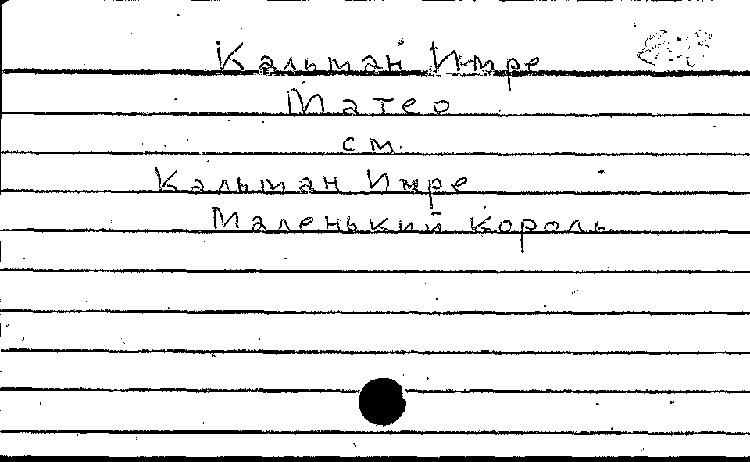 Кальман Имре
Матео
см.
Кальман Имре
Маленький король